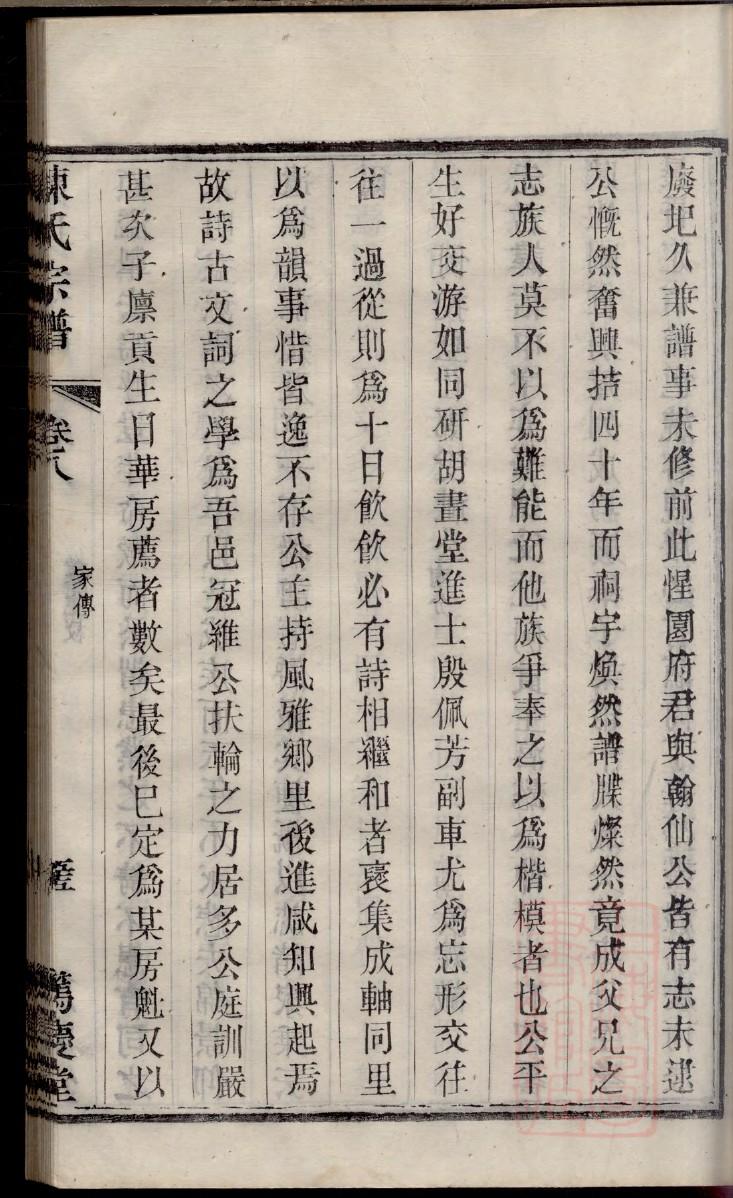 廢圯久兼譜事未修前此惺園府君與翰仙公皆有志未逮
公慨然奮興拮四十年而祠宇煥然譜牒燦然竟成父兄之
志族人莫不以爲難能而他族爭奉之以爲楷模者也公平
生好交游如同硏胡晝堂進士殷佩芳副車尤爲忘形交往
往一過從則爲十日飮飮必有詩相繼和者裒集成軸同里
以爲韻事惜皆逸不存公主持風雅鄉里後進咸知興起焉
故詩古文詞之學爲吾邑冠維公扶輪之力居多公庭訓嚴
甚次子廩貢生日華房薦者數矣最後已定爲某房魁又以
陳氏宗譜
卷八
家傳
萬慶堂